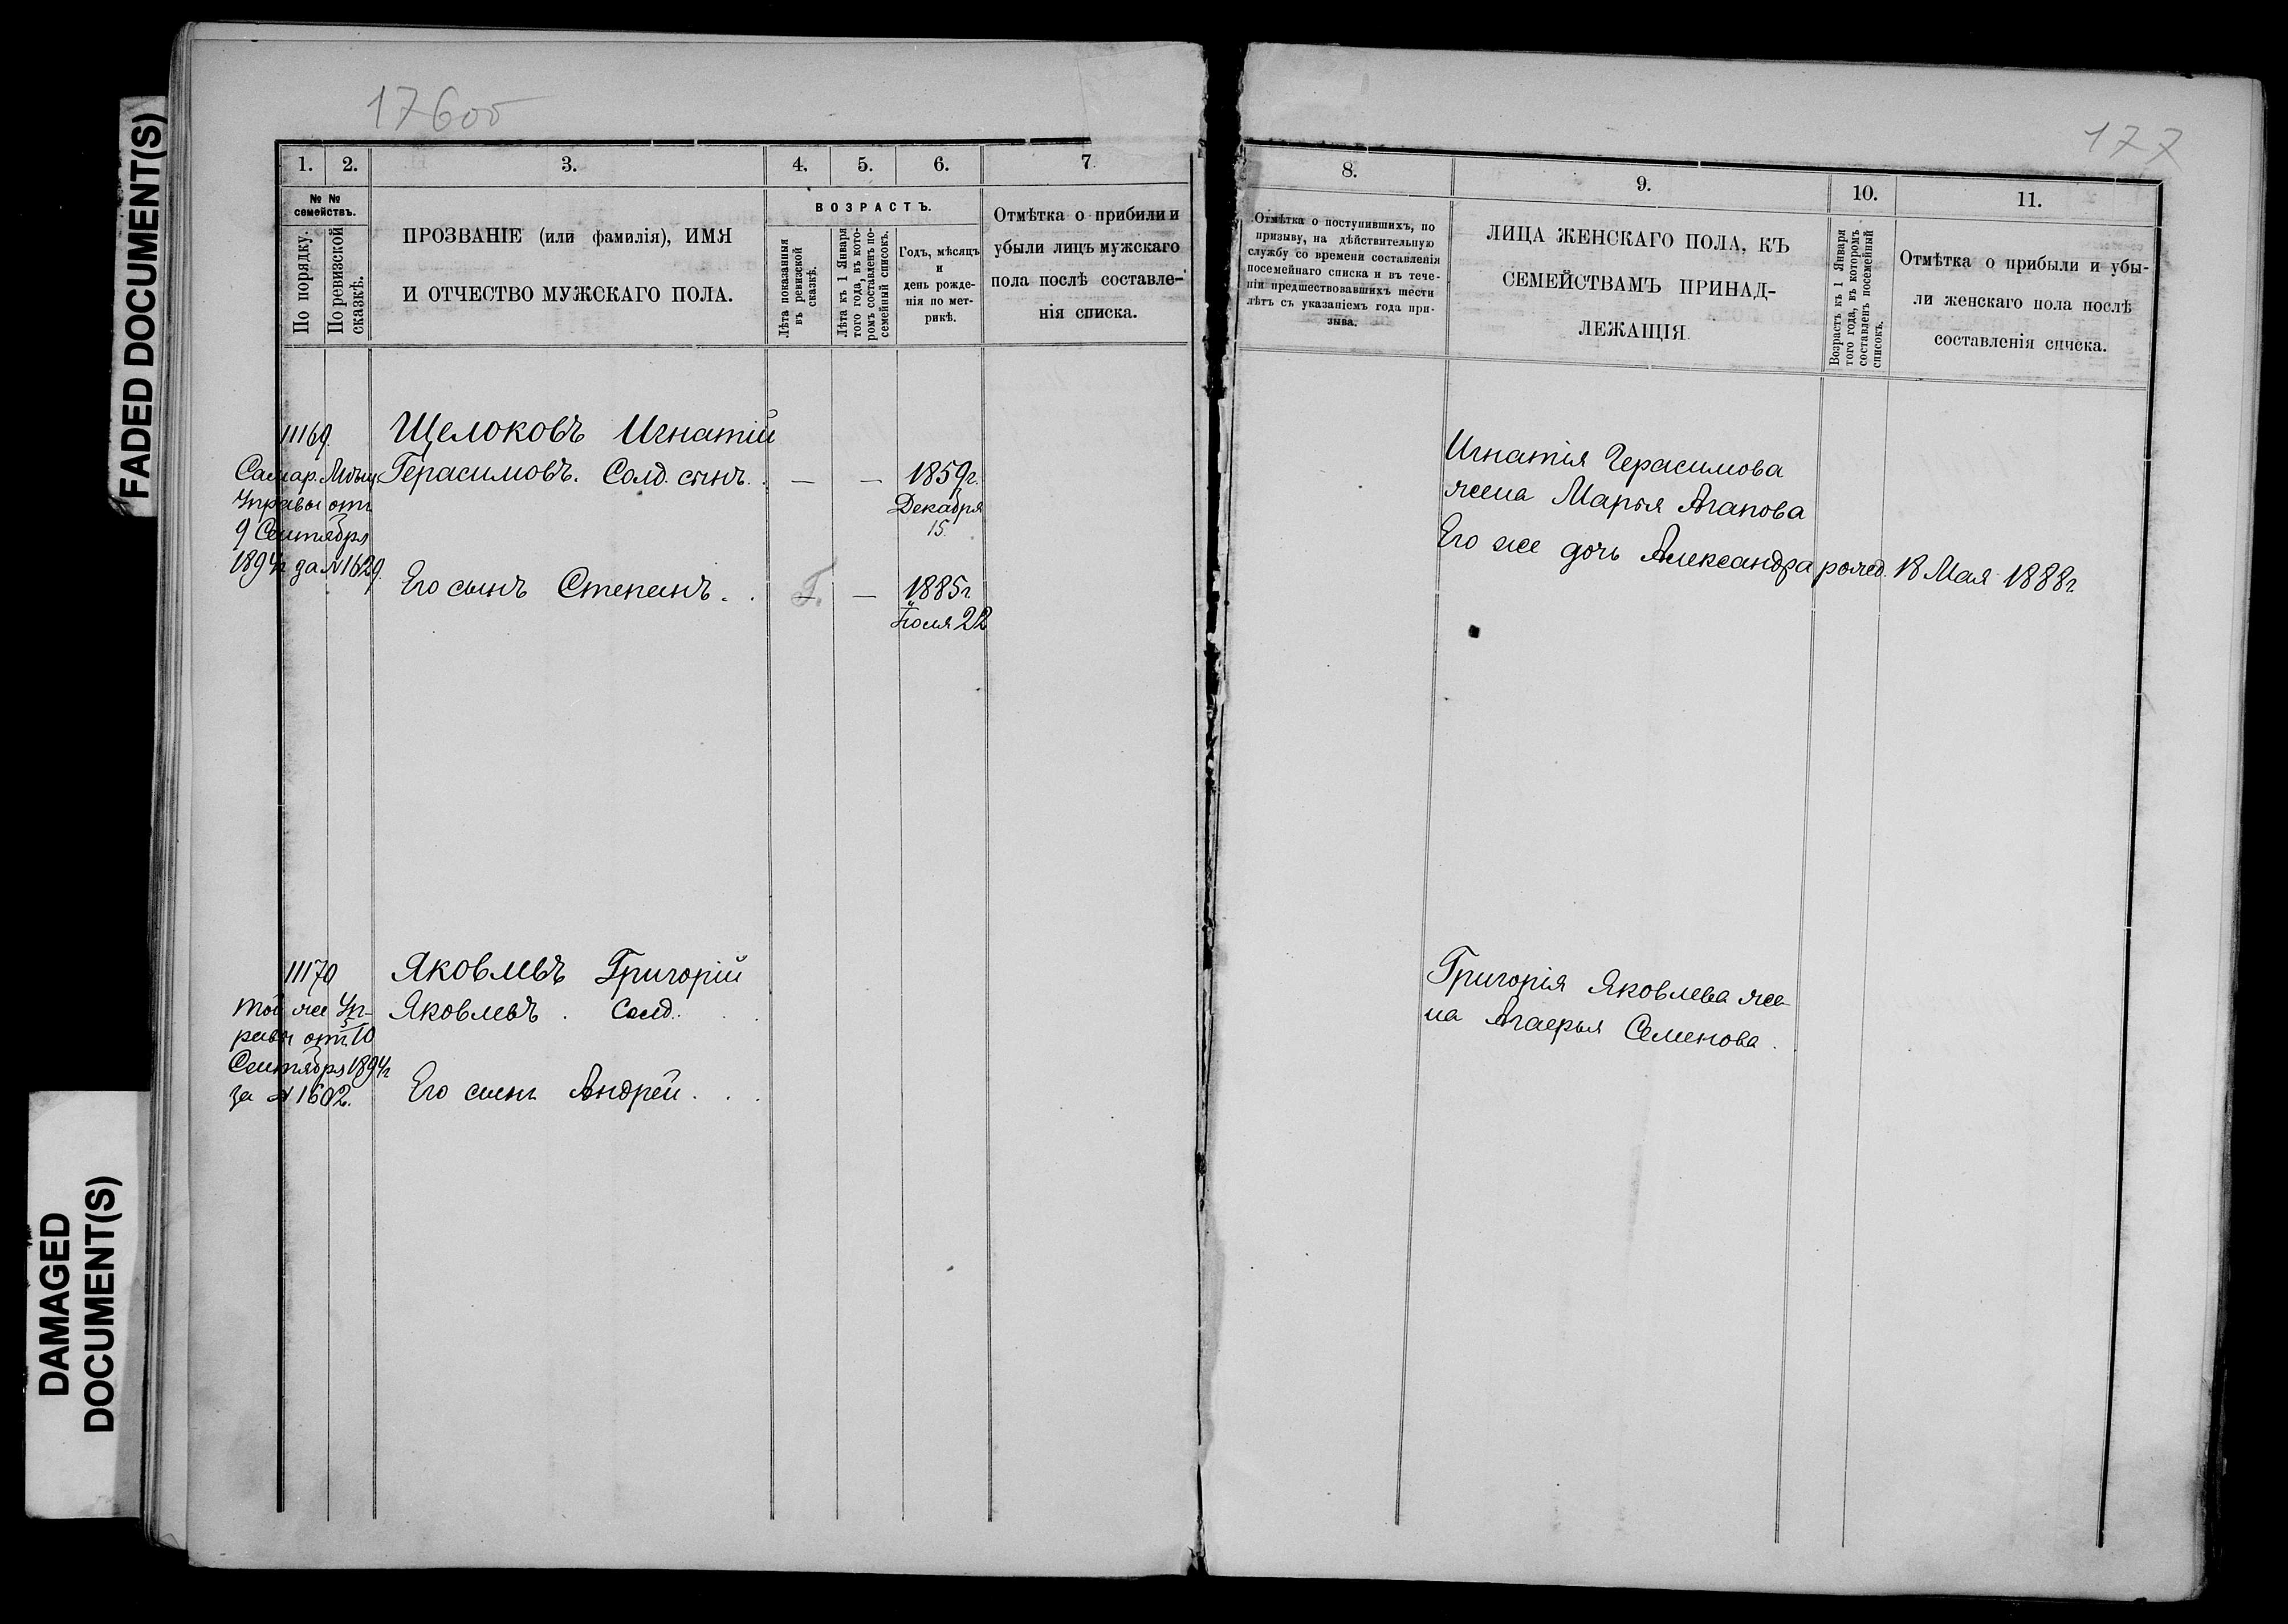 FADED DOCUMENT(S)
DAMAGED
DOCUMENT(S)
176об
1. 2. 3. 4. 5. 6. 7
№ №
семействъ.
По порядку.
По ревизской
сказкѣ.
ПРОЗВАНІЕ (или фамилія), ИМЯ
И ОТЧЕСТВО МУЖСКАГО ПОЛА.
ВОЗРАСТЪ.
Лѣта показанныя
въ ревизской
сказкѣ.
Лѣта къ 1 Января
того года, въ кото-
ромъ составленъ по-
семейный списокъ.
Годъ, мѣсяцъ
и
день рожде-
нія по мет-
рикѣ.
Отмѣтка о прибыли и
убыли лицъ мужскаго
пола послѣ составле-
нія списка.
11169.
Самар. Мѣщ.
Управы отъ
9 Сентября
1894г за №1629.
Щелоковъ Игнатій
Герасимовъ. Солд. сынъ. . — — 1859г.
Декабря
15.
Его сынъ Степанъ . . Г. — 1885г.
Іюля 22
11170
той же Уп-
равы отъ 5/10
Сентября 1894г
за №1602.
Яковлевъ Григорій
Яковлевъ . Солд. . .
Его сынъ Андрей . . .
177
8. 9. 10. 11.
Отмѣтка о поступившихъ, по
призыву, на дѣйствительную
службу со времени составленія
посемейнаго списка и въ тече-
ніи предшествовавшихъ шести
лѣтъ съ указаніемъ года при-
зыва.
ЛИЦА ЖЕНСКАГО ПОЛА, КЪ
СЕМЕЙСТВАМЪ ПРИНАД-
ЛЕЖАЩІЯ.
Возрастъ къ 1 Января
того года, въ которомъ
составленъ посемейный
списокъ.
Отмѣтка о прибыли и убы-
ли женскаго пола послѣ
составленія списка.
Игнатія Герасимова
жена Марья Агапова
Его же дочь Александра рожд. 18 Мая 1888г.
Григорія Яковлева же-
на Агаерья Семенова .